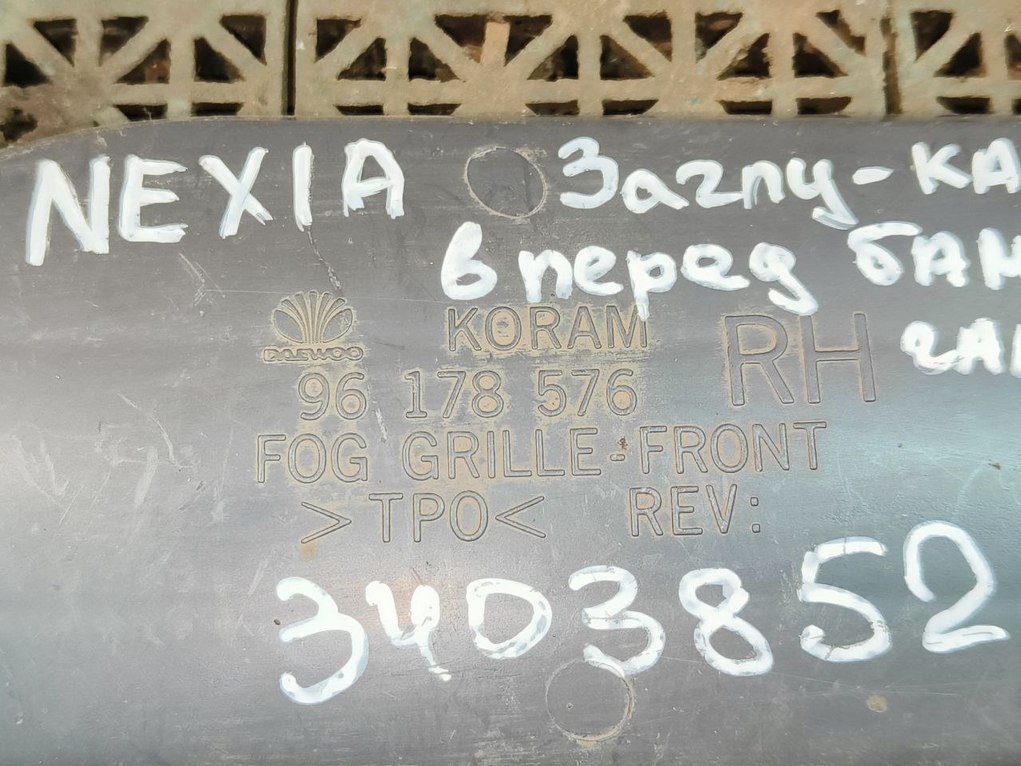 NEXIA Заглу-КА
в перед БАМ
KORAM
RH
DAEWOO
96 178 576
FOG GRILLE-FRONT
>TPO< REV:
3403852